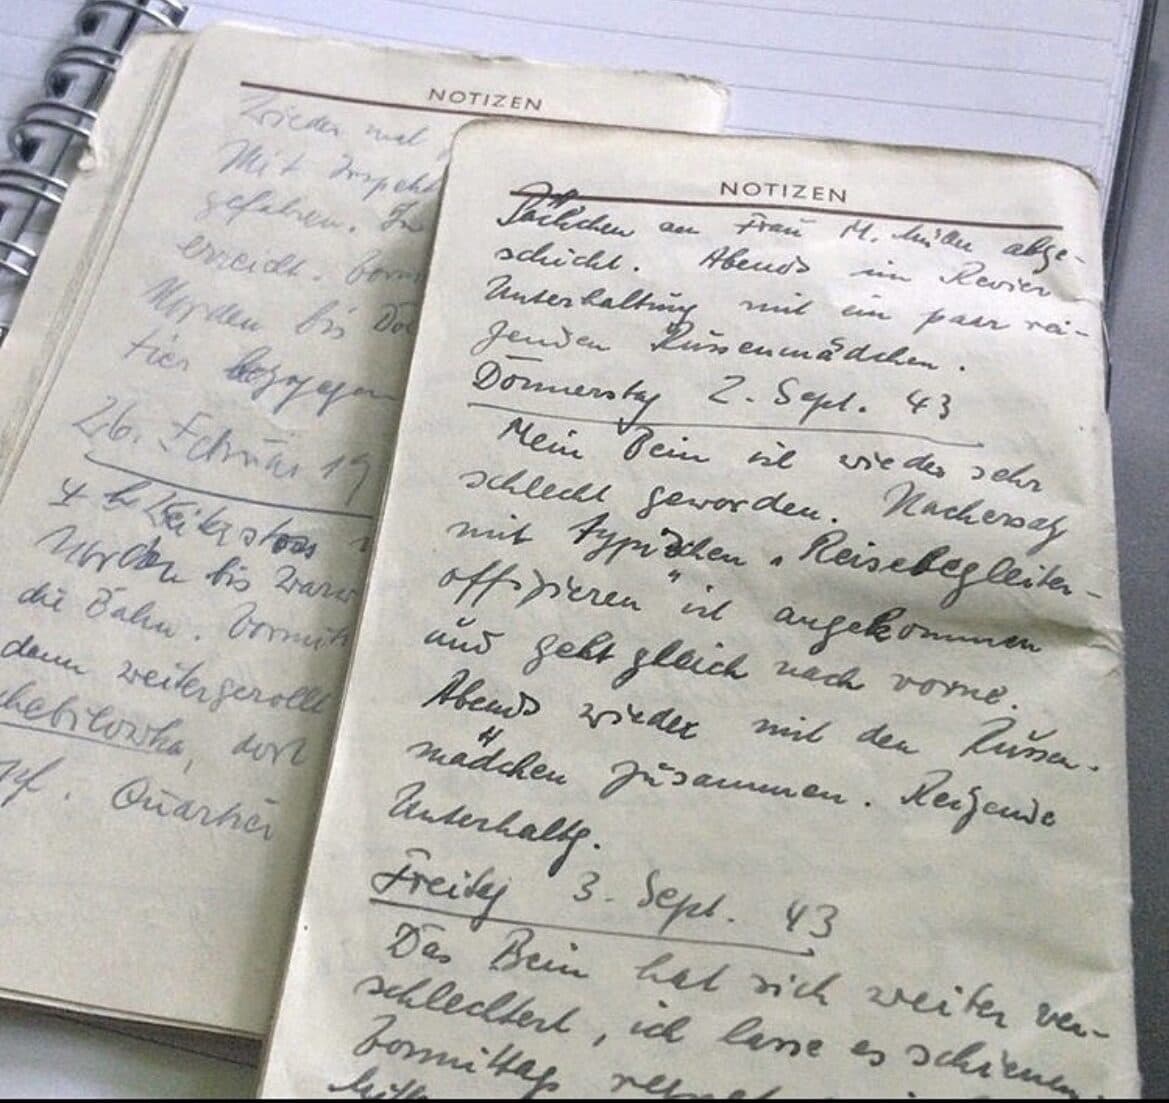 NOTIZEN
Wieder mal
Mit Inspekt
gefahren. In
erreicht. Vorm
Norden bis Do
tier bezogen
26. Februar 19
4 h Weiterstoss
Norden bis Warw
die Bahn. Vormit
dann weitergerollt
chebilowka, dort
Quartier
NOTIZEN
Päckchen an Frau M. abge-
schickt. Abends im Revier
Unterhaltung mit ein paar rei-
zenden Russenmädchen.
Donnerstag 2. Sept. 43
Mein Bein ist wieder sehr
schlecht geworden. Nachersatz
mit typischen „Reisebegleiter-
offizieren" ist angekommen
und geht gleich nach vorne.
Abends wieder mit den Russen-
mädchen zusammen. Reizende
Unterhaltg.
Freitag 3. Sept. 43
Das Bein hat sich weiter ver-
schlechtert, ich lasse es schienen
Vormittag